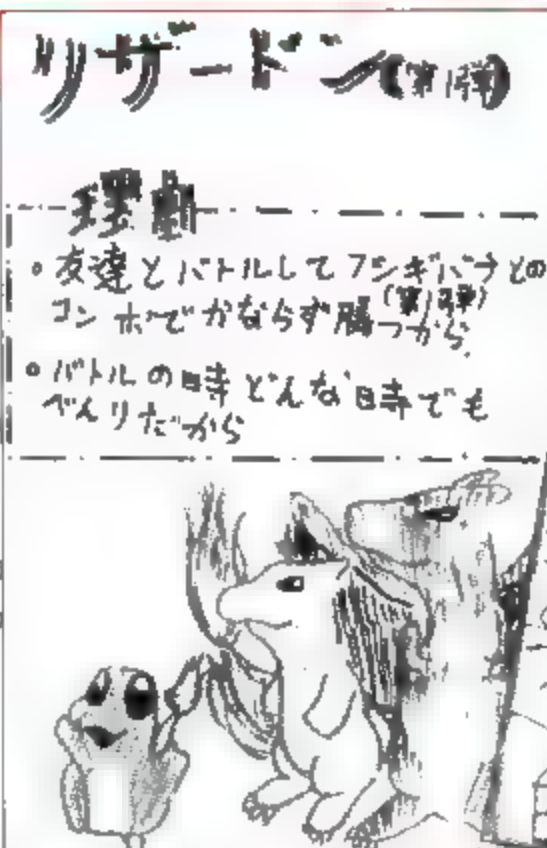 リザードン(第1弾)
理由
・友達とバトルしてフシギバナとの
コンボでかならず勝つから。
(第1弾)
・バトルの時どんな時でも
べんりだから